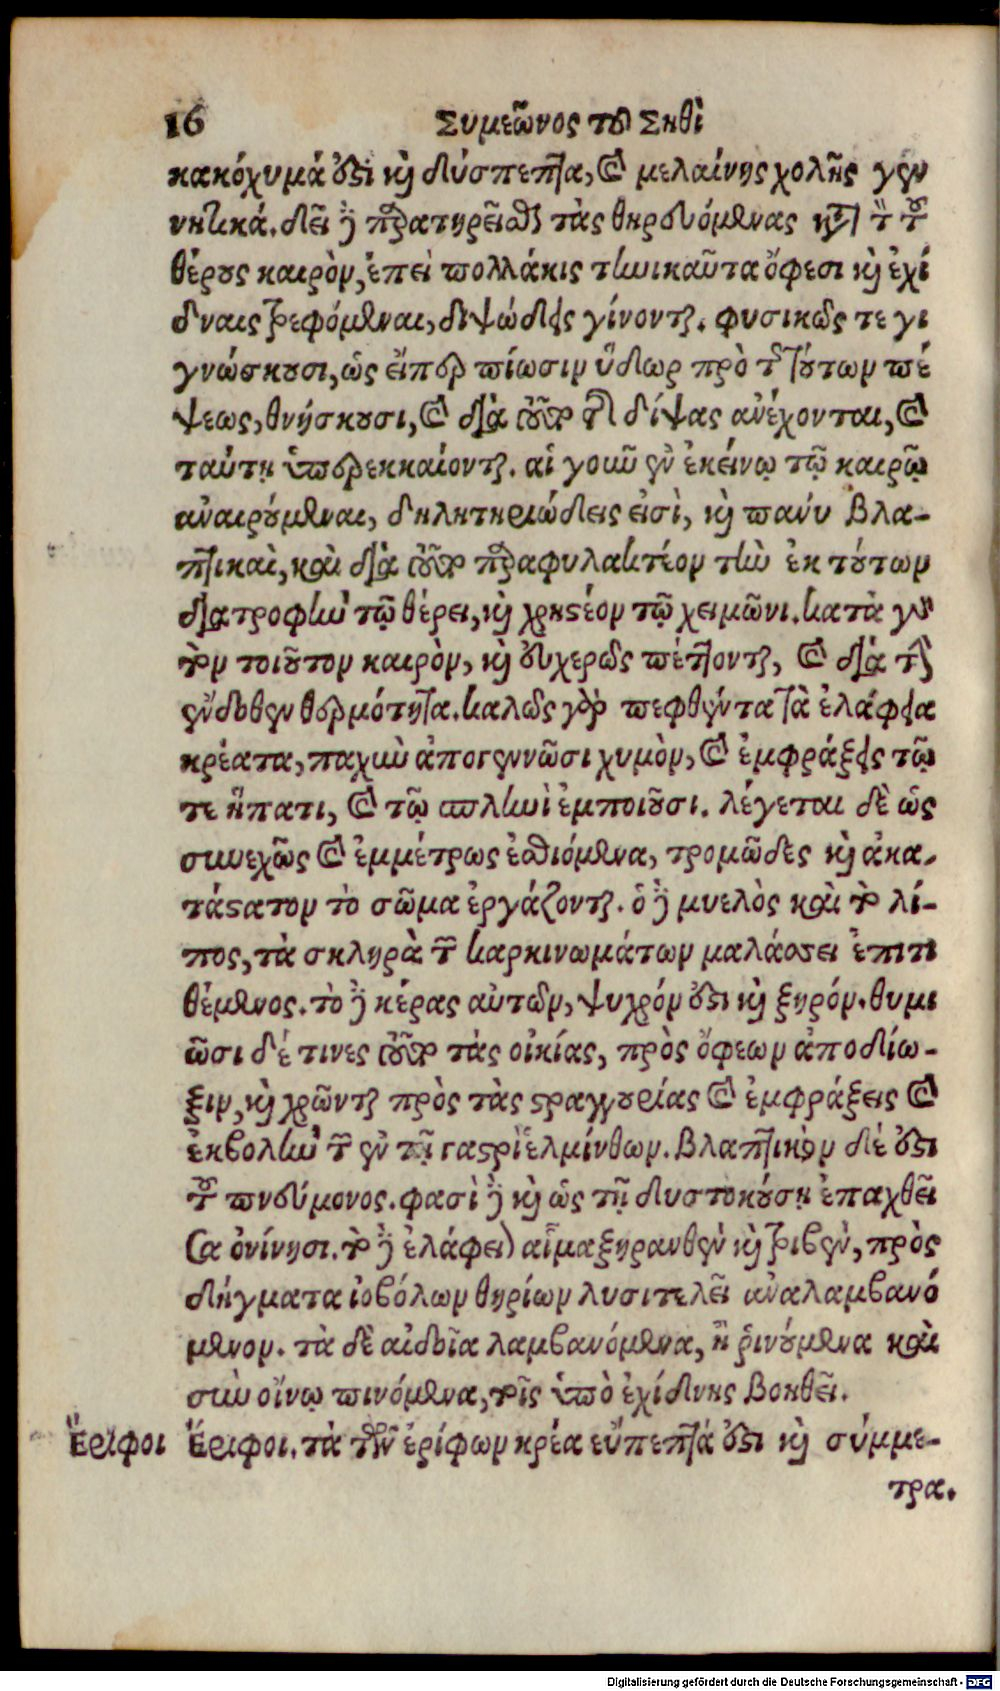 16 Συμεῶνος τοῦ Σηθὶ
κακόχυμά ἐστι καὶ δύσπεπτα, καὶ μελαίνης χολῆς γεν
νητικά. δεῖ δὲ παρατηρεῖσθαι τὰς θηρευομένας κατὰ τὸν τοῦ
θέρους καιρὸν, ἐπεὶ πολλάκις τηνικαῦτα ὄφεσι καὶ ἐχί
δναις τρεφόμεναι, διψώδεις γίνονται. φυσικῶς τε γι
γνώσκουσι, ὡς εἴπερ πίωσιν ὕδωρ πρὸ τῆς τούτων πέ
ψεως, θνήσκουσι, καὶ διὰ τοῦτο τῆς δίψας ἀνέχονται, καὶ
ταύτῃ ὑπερεκκαίονται. αἱ γοῦν ἐν ἐκείνῳ τῷ καιρῷ
ἀναιρούμεναι, δηλητηριώδεις εἰσὶ, καὶ πάνυ βλα-
πτικαὶ, καὶ διὰ τοῦτο παραφυλακτέον τὴν ἐκ τούτων
διατροφὴν τῷ θέρει, καὶ χρηστέον τῷ χειμῶνι. κατὰ γὰρ
τὸν τοιοῦτον καιρὸν, καὶ εὐχερῶς πέπτονται, καὶ διὰ τὴν
ἔνδοθεν θερμότητα. καλῶς γὰρ πεφθέντα τὰ ἐλάφεια
κρέατα, παχὺν ἀπογεννῶσι χυμὸν, καὶ ἐμφράξεις τῷ
τε ἥπατι, καὶ τῷ σπληνὶ ἐμποιοῦσι. λέγεται δὲ ὡς
συνεχῶς καὶ ἐμμέτρως ἐσθιόμενα, τρομῶδες καὶ ἀκα-
τάστατον τὸ σῶμα ἐργάζονται. ὁ δὲ μυελὸς καὶ τὸ λί-
πος, τὰ σκληρὰ τῶν καρκινωμάτων μαλάσσει ἐπιτι
θέμενος. τὸ δὲ κέρας αὐτῶν, ψυχρόν ἐστι καὶ ξηρόν. θυμι
ῶσι δέ τινες τοῦτο τὰς οἰκίας, πρὸς ὄφεων ἀποδίω-
ξιν, καὶ χρῶνται πρὸς τὰς στραγγουρίας καὶ ἐμφράξεις καὶ
ἐκβολὴν τῶν ἐν τῇ γαστρὶ ἑλμίνθων. βλαπτικὸν δέ ἐστι
τοῦ πνεύμονος. φασὶ δὲ καὶ ὡς τῇ δυστοκούσῃ ἐπαχθεῖ
σα ὀνίνησι. τὸ δὲ ἐλάφειον αἷμα ξηρανθὲν καὶ τριβὲν, πρὸς
δήγματα ἰοβόλων θηρίων λυσιτελεῖ ἀναλαμβανό
μενον. τὰ δὲ αἰδοῖα λαμβανόμενα, ἢ ῥινούμενα καὶ
σὺν οἴνῳ πινόμενα, τοῖς ὑπὸ ἐχίδνης βοηθεῖ.
Ἔριφοι Ἔριφοι. τὰ τῶν ἐρίφων κρέα εὔπεπτά ἐστι καὶ σύμμε-
τρα.
Digitalisierung gefördert durch die Deutsche Forschungsgemeinschaft - DFG